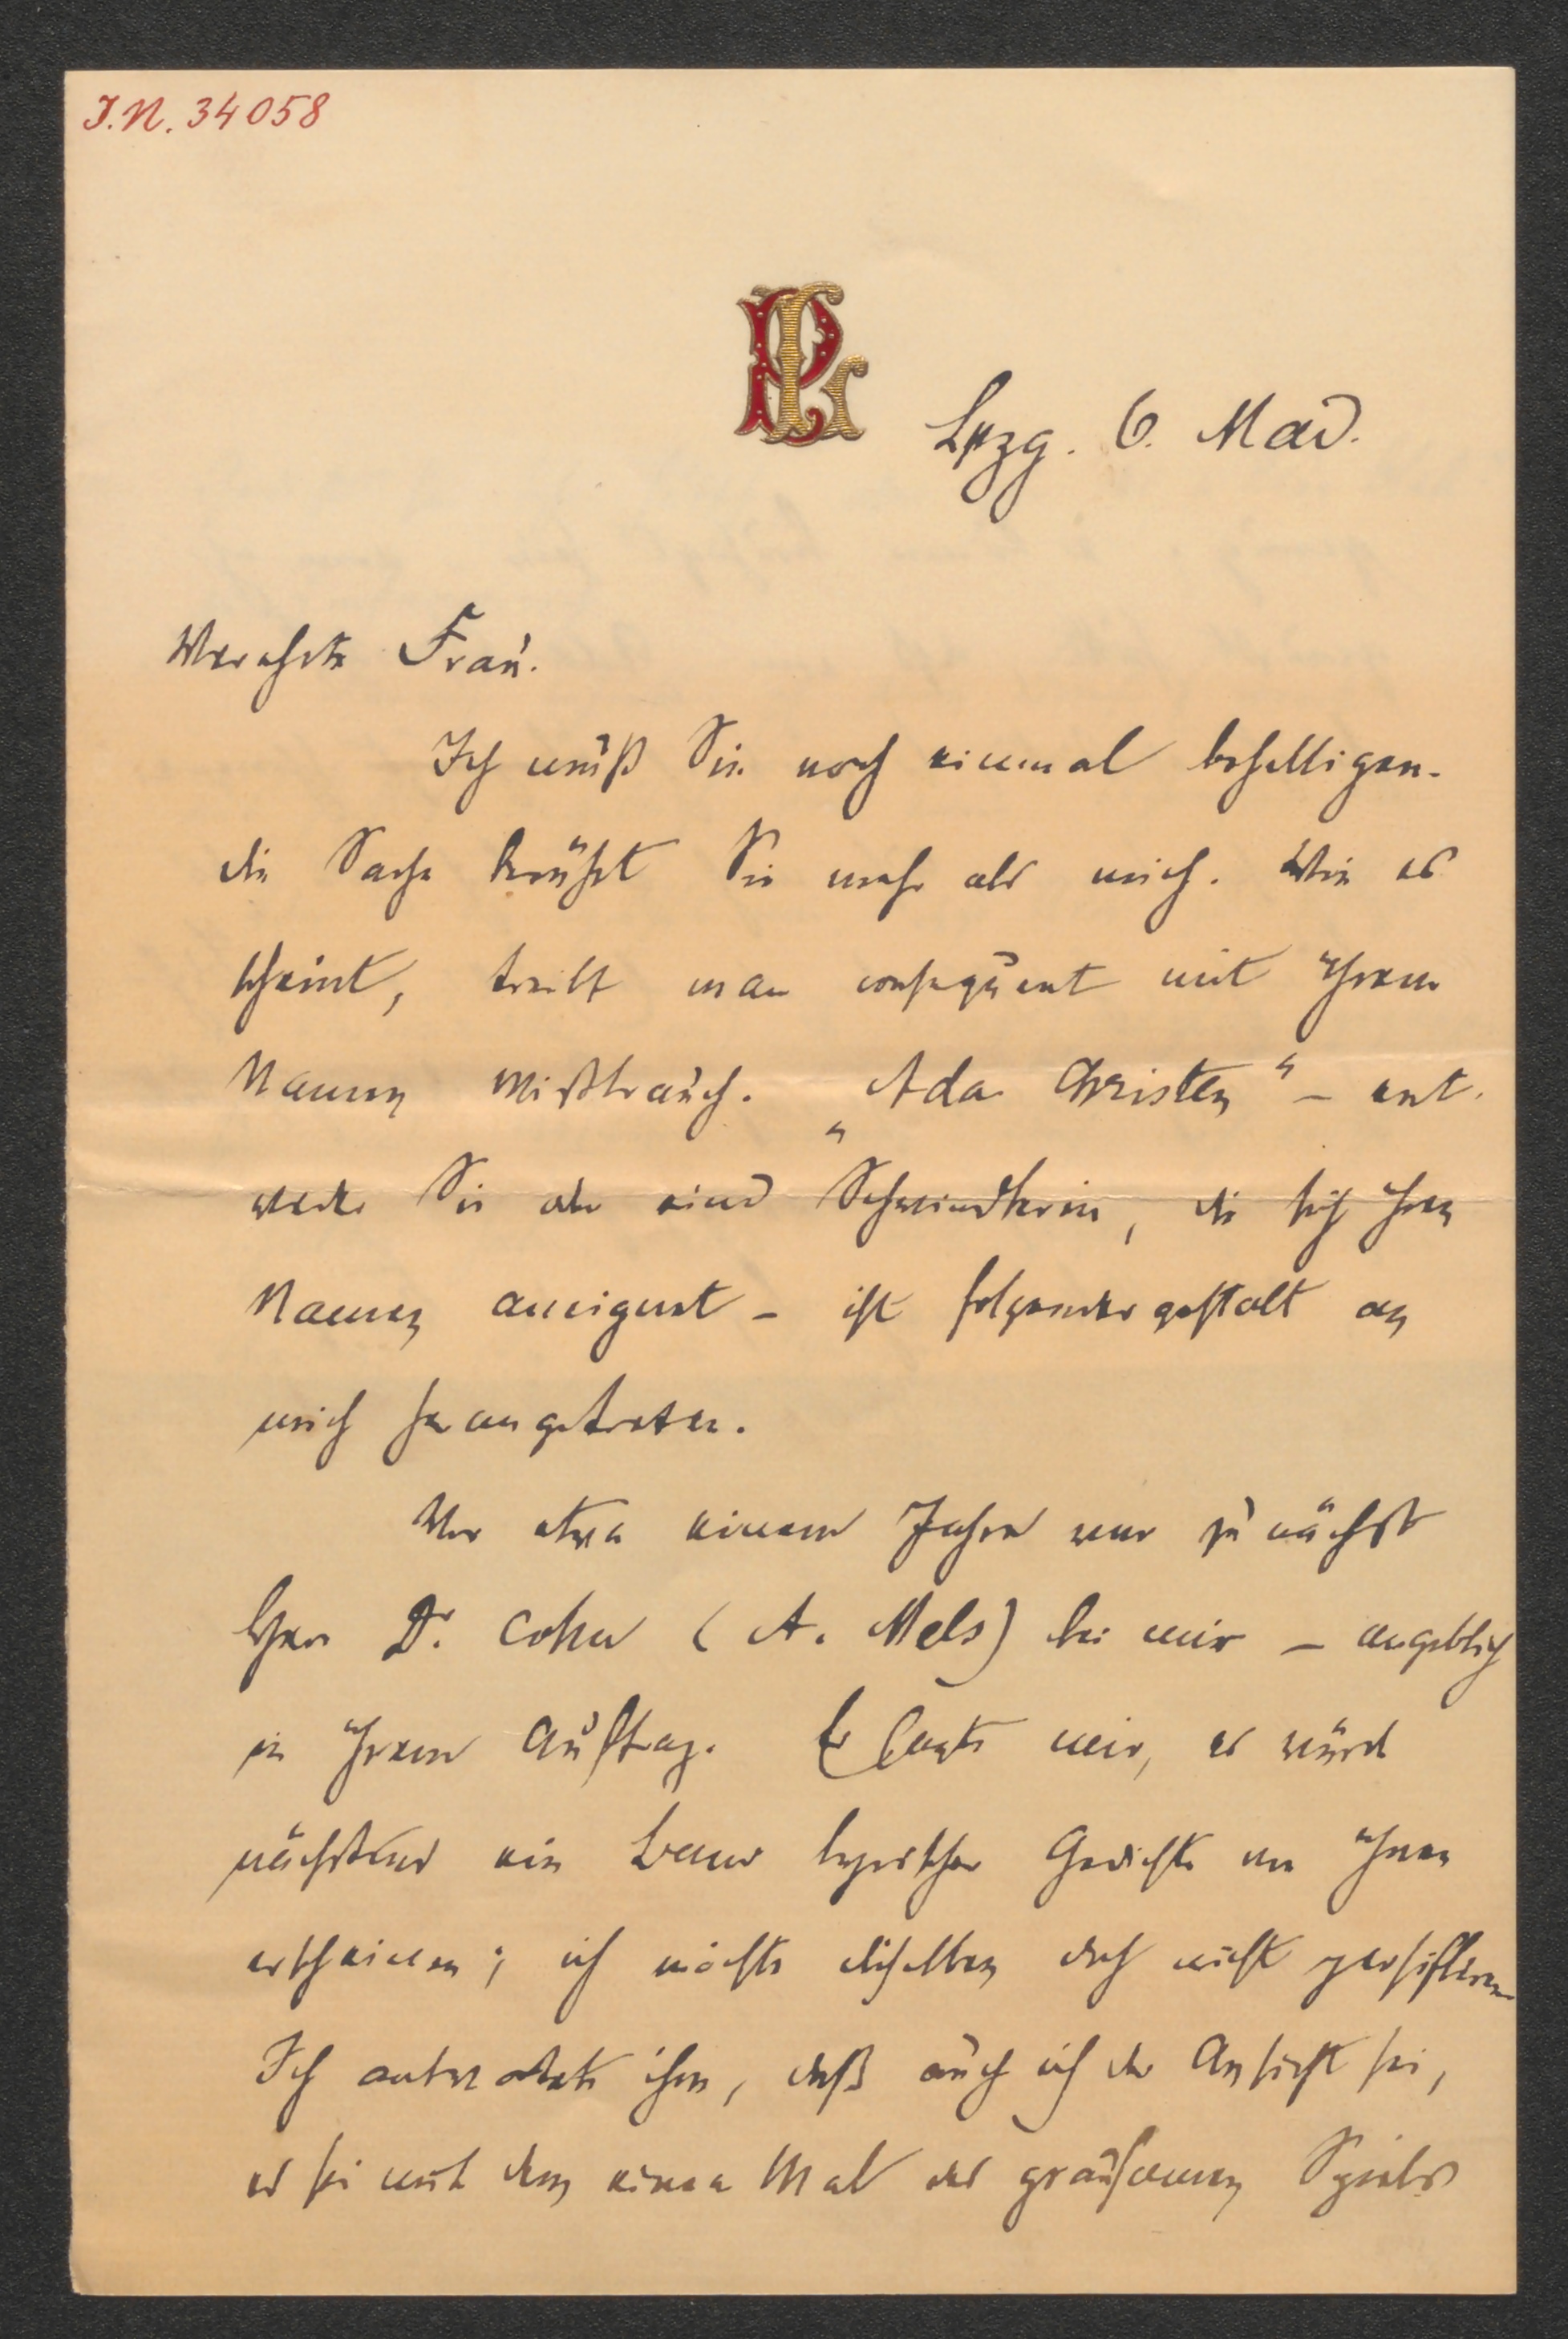 I.N. 34058
PL
Lpzg. 6. Mai.
Verehrte Frau.
Ich muß Sie noch einmal behelligen.
die Sache berührt Sie mehr als mich. Wie es
scheint, treibt man consequent mit Ihrem
Namen Mißbrauch. „Ada Christen“ – ent-
weder Sie oder eine Schwindlerin, die sich Ihren
Namen aneignet – ist folgendergestalt an
mich herangetreten.
Vor etwa einem Jahre war zunächst
Herr Dr. Cohn (A. Mels) bei mir – angeblich
in Ihrem Auftrag. Er sagte mir, es würde
nächstens ein Band lyrischer Gedichte von Ihnen
erscheinen; ich möchte dieselben doch nicht persifliren
Ich antwortete ihm, daß auch ich der Ansicht sei,
es sei mit dem einen Mal des grausamen Spiels